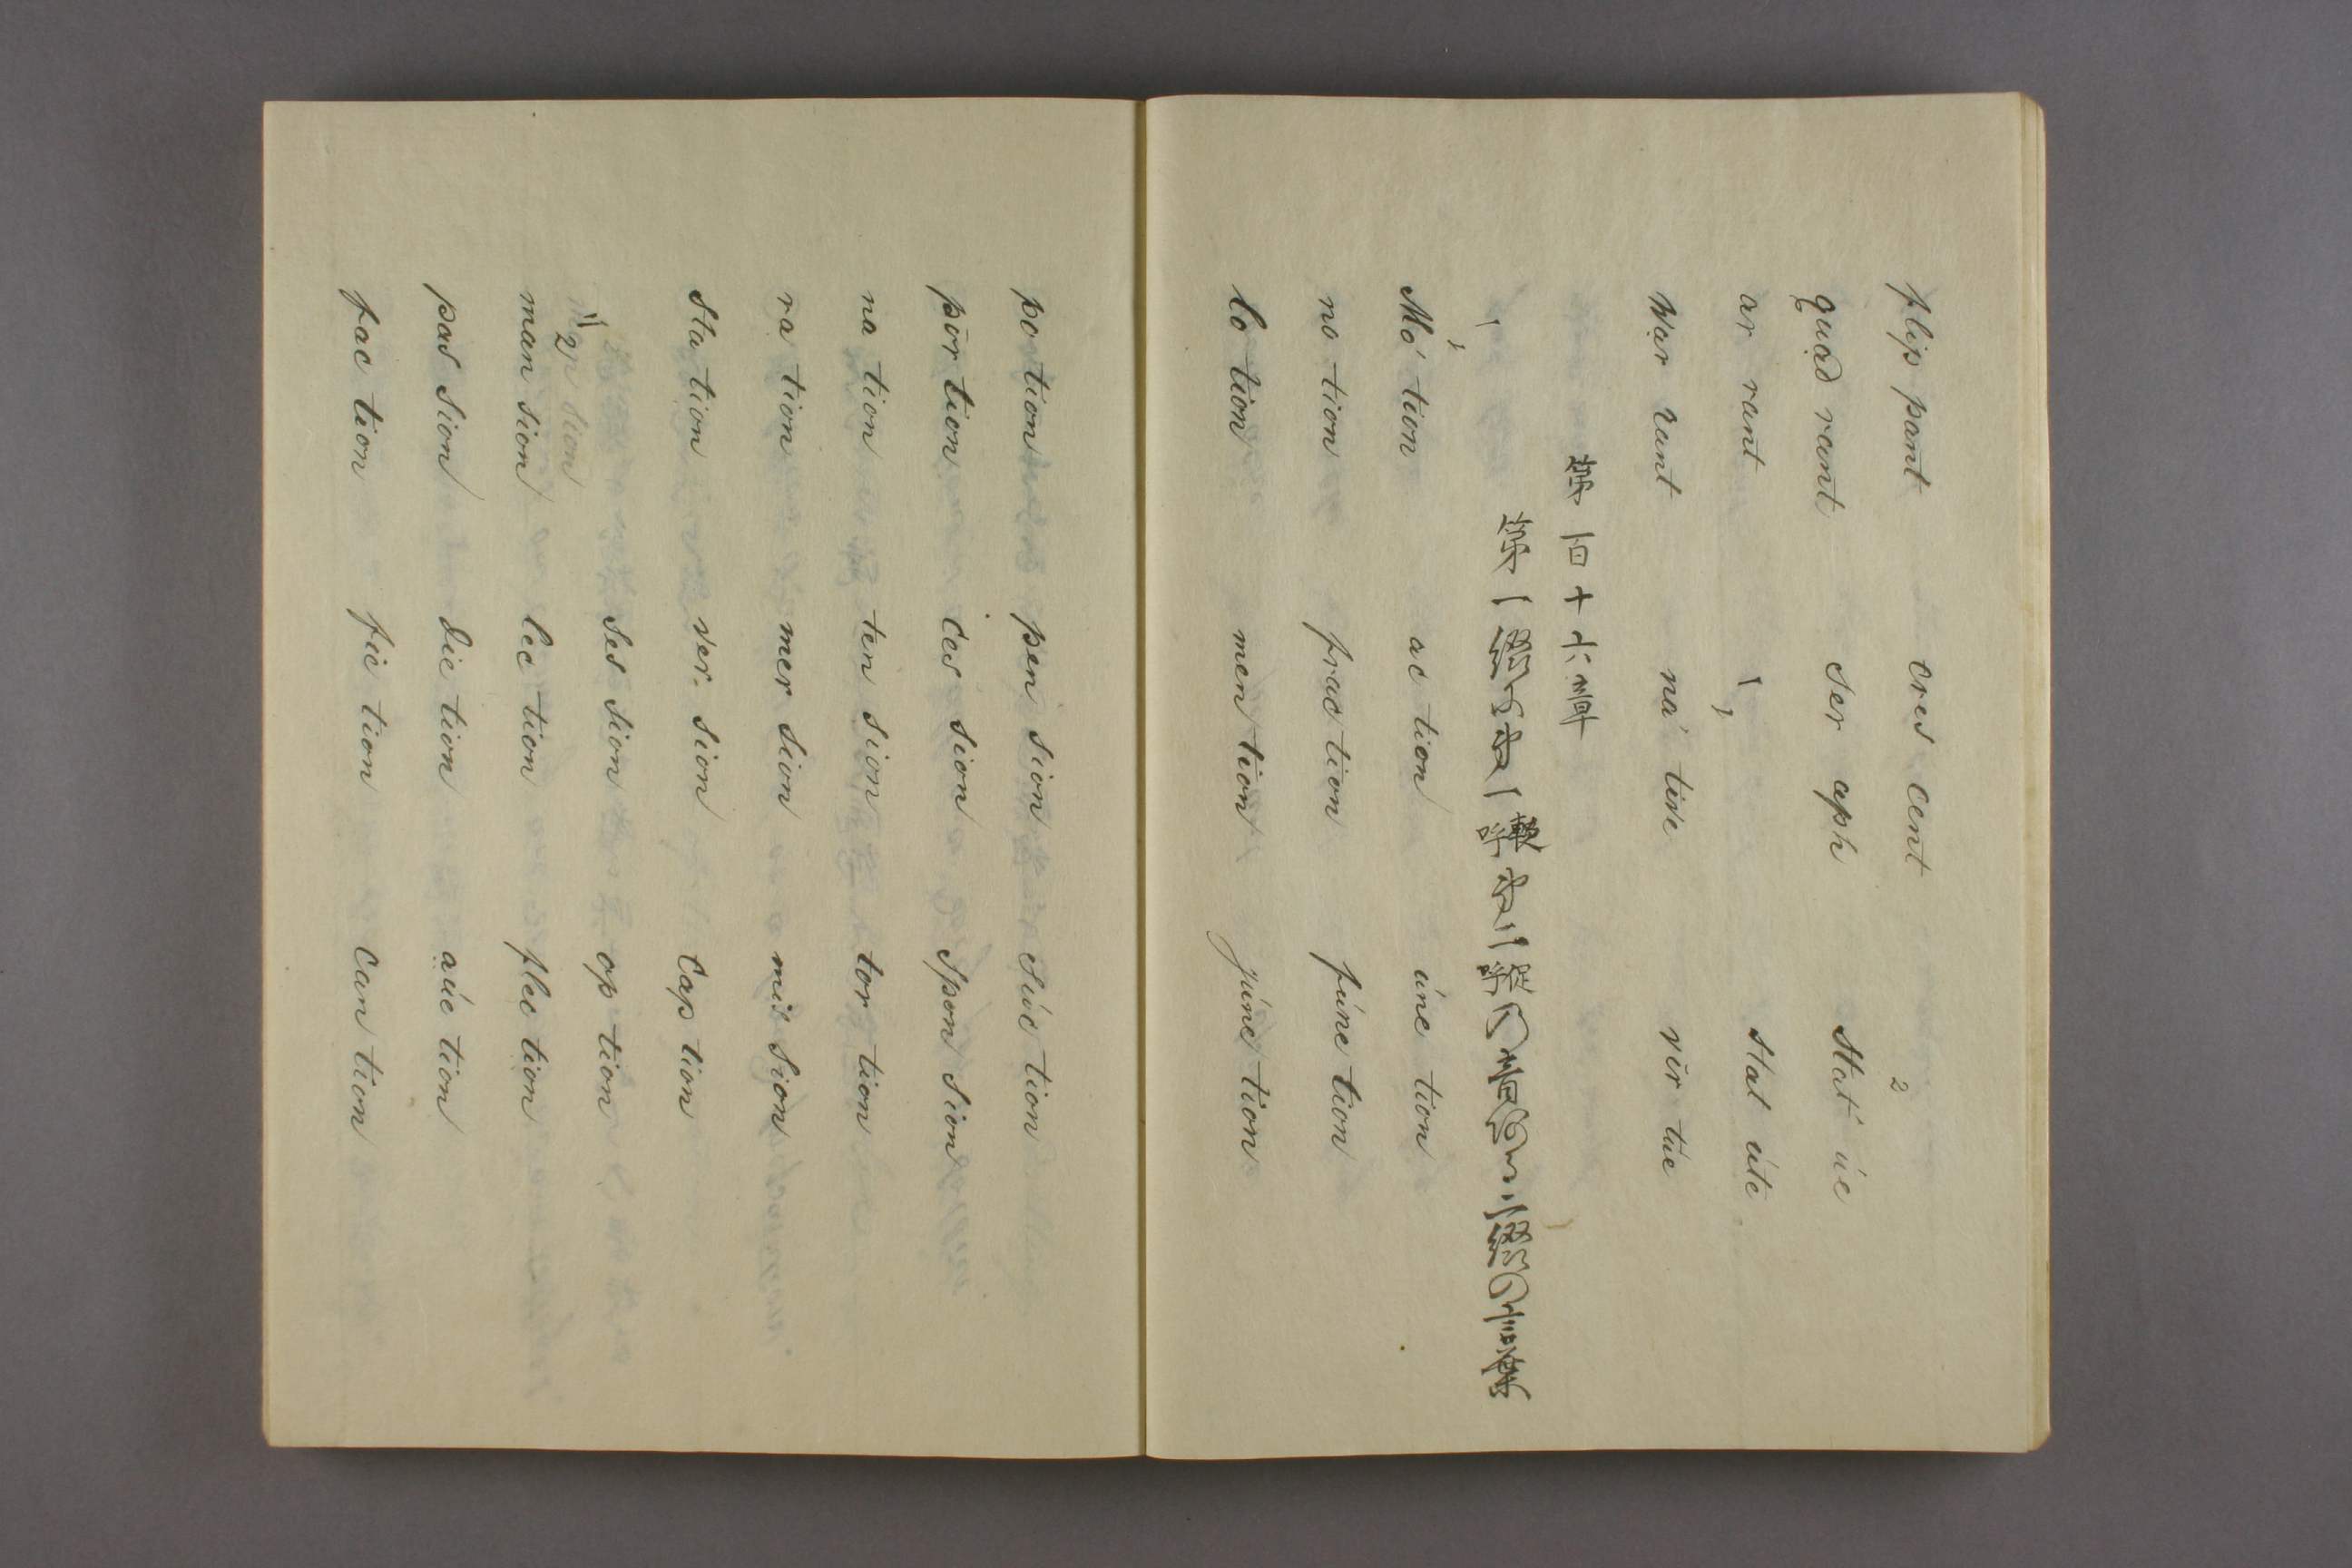 flip pant cres cent 2
quad rant ser aph Stat' úe
ar rant 1, stat úte
War rant ná ture vir túe
第百十六章
第一綴 一軟呼 二促呼 の音 二綴の言葉
1,
Mó tion ac tion únc tion
no tion frac tion fúnc tion
lo tion men tion júnc tion
po tion pen sion súc tion
pōr tion Ces sion Spon sion
na tion ten sion tor tion
ra tion mer sion mis sion
Sta tion ver sion Cap tion
2 Ses sion op tion
man sion lec tion flec tion
pas sion dic tion aúc tion
fac tion fic tion Can tion